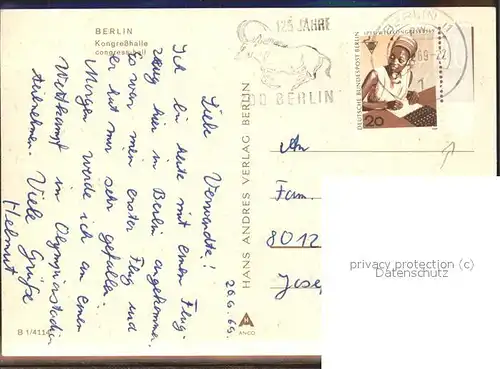 BERLIN
Kongreßhalle
congress-hall
125 JAHRE
ZOO BERLIN
BERLIN
69-22
DEUTSCHE BUNDESPOST BERLIN
20
Liebe Verwandte!
Ich bin heute mit einem Flug-
zeug hier in Berlin angekommen.
Es war mein erster Flug und
er hat mir sehr gefallen.
Morgen werde ich an einem
Wettkampf im Olympiastadion
teilnehmen. Viele Grüße
Helmut
20.6.69.
HANS ANDRES VERLAG BERLIN
ANCO
B 1/4114
An
Fam.
8012
privacy protection (c)
Datenschutz